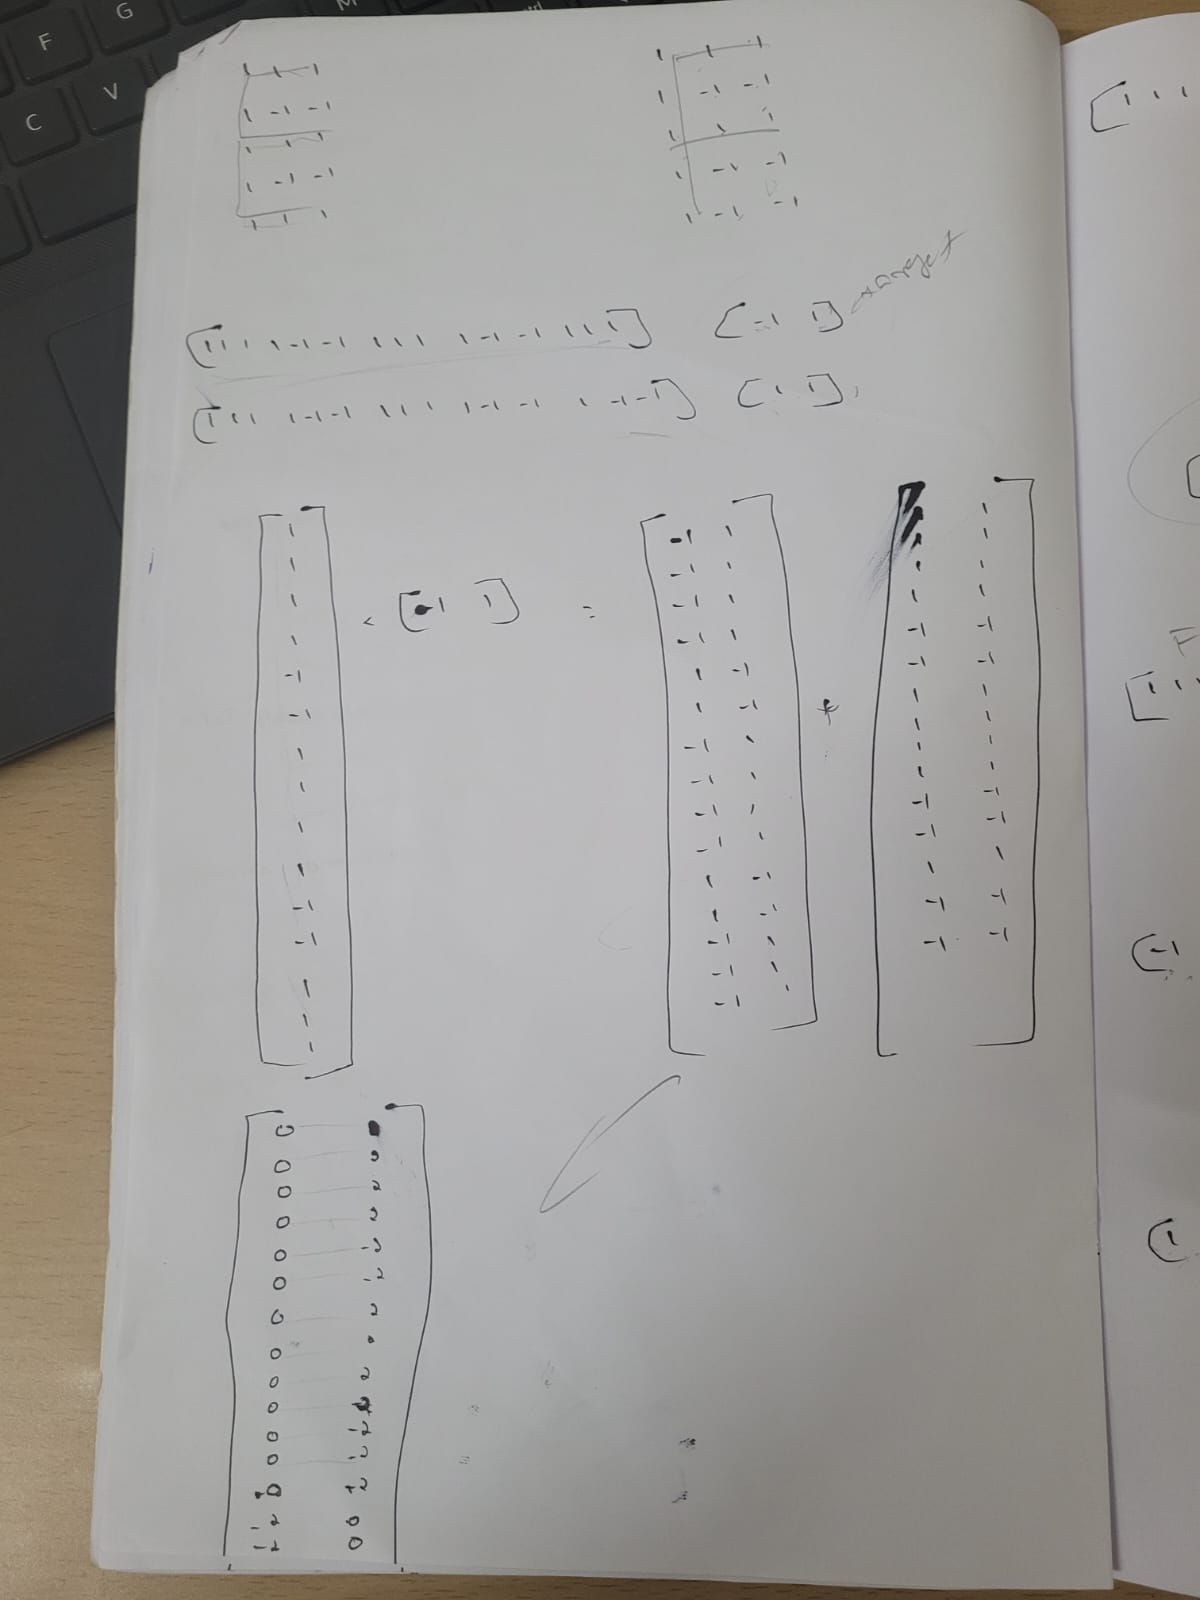 F G
C V
1 1 1
1 -1 -1
1 1 1
1 -1 -1
1 1 1
1 1 1
1 -1 -1
1 1 1
1 -1 -1
1 -1 -1
[1 1 1 1 -1 -1 1 1 1 1 -1 -1 1 1 1] [-1 1] target
[1 1 1 1 -1 -1 1 1 1 1 -1 -1 1 -1 -1] [1 1]
[1 1 1
1
1
1
1
-1
-1
1
1
1
1
-1
-1
1
1
1
[-1 1] =
-1 1
-1 1
-1 1
-1 1
1 -1
1 -1
-1 1
-1 1
-1 1
-1 1
1 -1
1 -1
-1 1
-1 1
-1 1
*
1 1
1 1
1 1
1 1
-1 -1
-1 -1
1 1
1 1
1 1
1 1
-1 -1
-1 -1
1 1
-1 -1
-1 -1
0
0 2
0 2
0 2
0 -2
0 -2
0 2
0 2
0 2
0 2
0 -2
0 -2
0 2
-2 0
-2 0